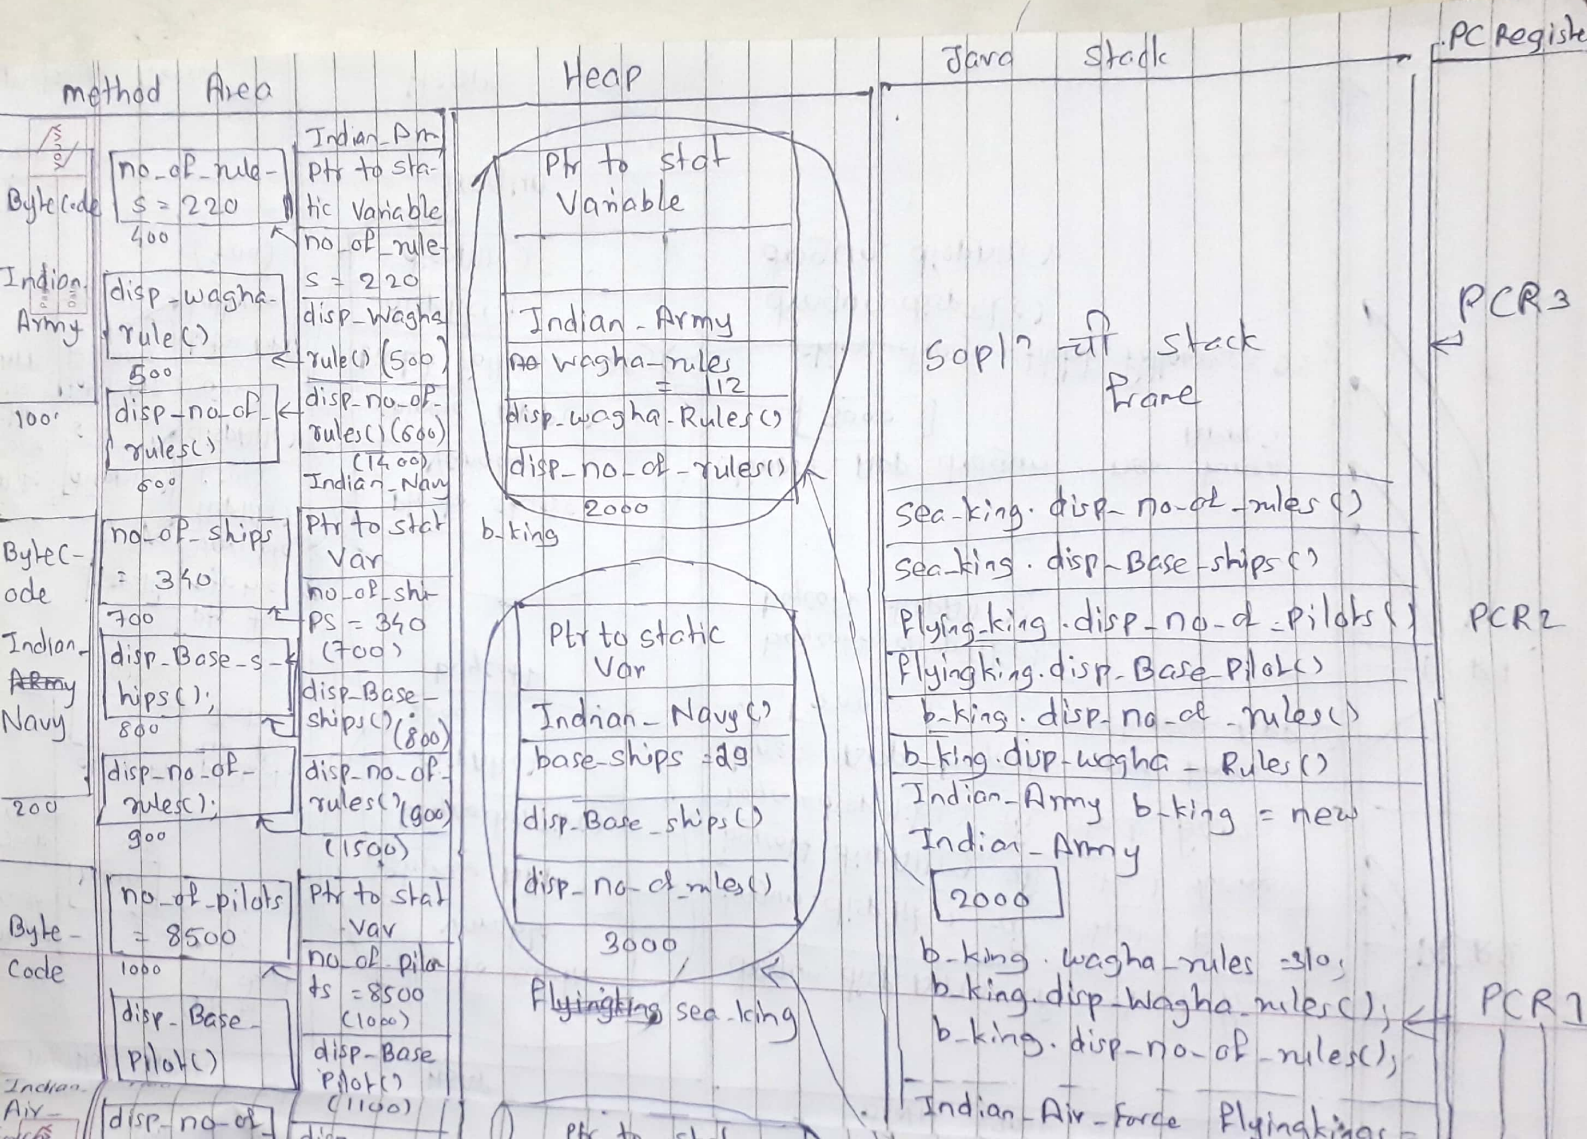 method Area
Byte Code
Indian
Army
100
Bytec-
ode
Indian-
Navy
200
Byte-
Code
Indian
Air-
no_of_rule-
s = 220
400
disp_wagha-
rule()
500
disp_no_of_
rules()
600
no_of_ships
= 340
700
disp_Base_s-
hips();
800
disp_no_of-
rules();
900
no_of_pilots
= 8500
1000
disp_Base_
Pilot()
disp_no_of_
Indian_Arm
Ptr to sta-
tic Variable
no_of_rule-
s = 220
disp_Wagha
rule() (500)
disp_no_of-
rules() (600)
(1400)
Indian_Navy
Ptr to stat
Var
no_of_shi-
ps = 340
(700)
disp_Base_
ships() (800)
disp_no_of-
rules() (900)
(1500)
Ptr to stat
var
no_of_pilo
ts = 8500
(1000)
disp_Base
Pilot()
(1100)
Heap
Ptr to stat
Variable
Indian_Army
wagha_rules
= 112
disp_wagha_Rules()
disp_no_of_rules()
2000
b_king
Ptr to static
Var
Indian_Navy()
base_ships = 29
disp_Base_ships()
disp_no_of_rules()
3000
sea_king
Ptr to stat
Java Stack
Sopln ची stack
frame
sea_king. disp_no_of_rules ()
sea_king. disp_Base_ships ()
flying_king. disp_no_of_Pilots()
flyingking. disp_Base_Pilot()
b_king. disp_no_of_rules()
b_king. disp_wagha_Rules()
Indian_Army b_king = new
Indian_Army
2000
b_king. wagha_rules = 310;
b_king. disp_Wagha_rules();
b_king. disp_no_of_rules();
Indian_Air_Force flyingking =
PC Registe
PCR3
PCR2
PCR1